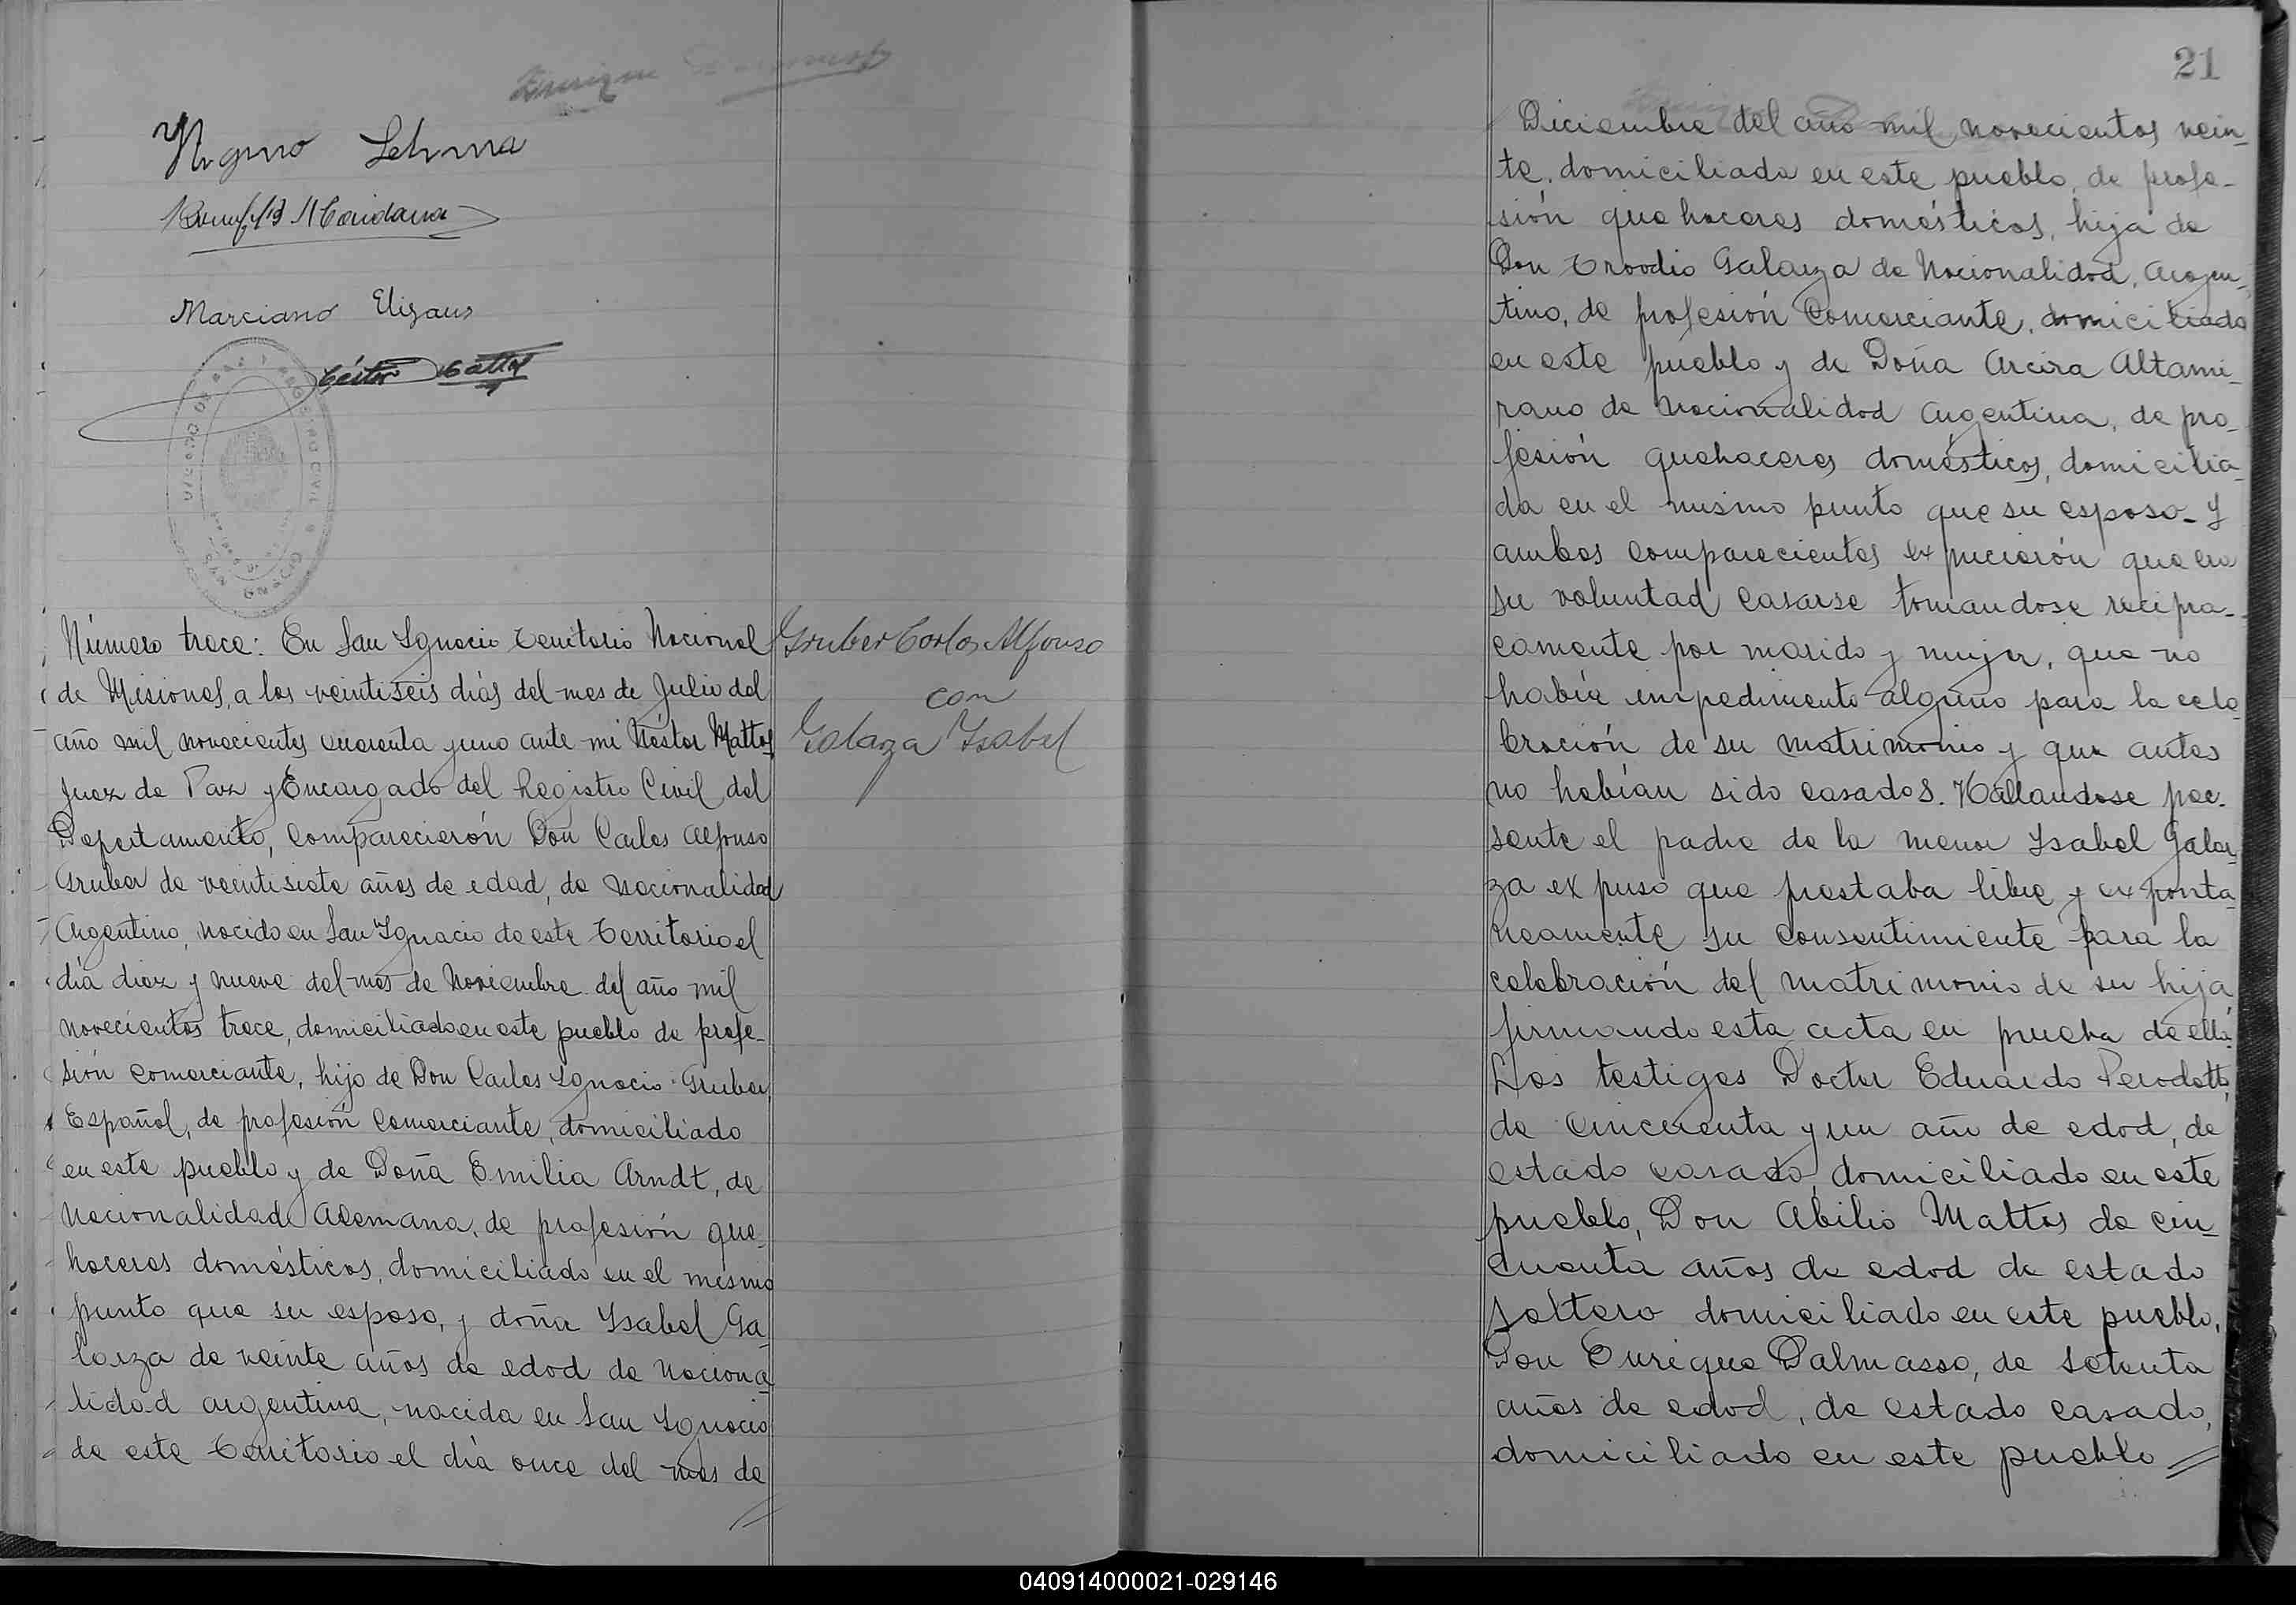 Enrique
Marciano
Néstor Mattos
JUZGADO DE PAZ Y REGISTRO CIVIL
SAN IGNACIO
Número trece: En San Ygnacio Territorio Nacional
de Misiones, a los veintiseis dias del mes de Julio del
año mil novecientos cuarenta y uno ante mi Néstor Mattos
Juez de Paz y Encargado del Registro Civil del
Departamento, comparecierón Don Carlos Alfonso
Gruber de veintisiete años de edad, de nacionalidad
Argentino, nacido en San Ygnacio de este Territorio el
día diez y nueve del mes de Noviembre del año mil
novecientos trece, domiciliado en este pueblo de profe-
sión comerciante, hijo de Don Carlos Ygnacio Gruber,
Español, de profesión Comerciante, domiciliado
en este pueblo y de Doña Emilia Arndt, de
Nacionalidad Alemana, de profesión que-
haceres domésticos, domiciliado en el mismo
punto que su esposo, y doña Ysabel Ga-
larza de veinte años de edad de naciona-
lidad argentina, nacida en San Ygnacio
de este Territorio el día once del mes de
Gruber Carlos Alfonso
con
Galarza Ysabel
21
Diciembre del año mil novecientos vein-
te, domiciliada en este pueblo, de profe-
sión quehaceres domésticos, hija de
Don Galarza de Nacionalidad, Argen-
tino, de profesión Comerciante, domiciliado
en este pueblo y de Doña Arcira Altami-
rano de nacionalidad Argentina, de pro-
fesión quehaceres domésticos, domicilia-
da en el mismo punto que su esposo - Y
ambos comparecientes expucierón que era
su voluntad casarse tomandose recipro-
camente por marido y mujer, que no
había impedimento alguno para la cele-
bración de su matrimonio y que antes
no habían sido casados. Hallandose pre-
sente el padre de la menor Ysabel Galar-
za expuso que prestaba libre y exponta-
neamente su consentimiente para la
celebración del matrimonio de su hija
firmando esta acta en prueba de ello.
Los testigos Doctor Eduardo Perodotto,
de cincuenta y un año de edad, de
estado casado, domiciliado en este
pueblo, Don Abilio Mattos de cin-
cuenta años de edad de estado
soltero domiciliado en este pueblo,
Don Enrique Dalmasso, de setenta
años de edad, de estado casado,
domiciliado en este pueblo
040914000021-029146